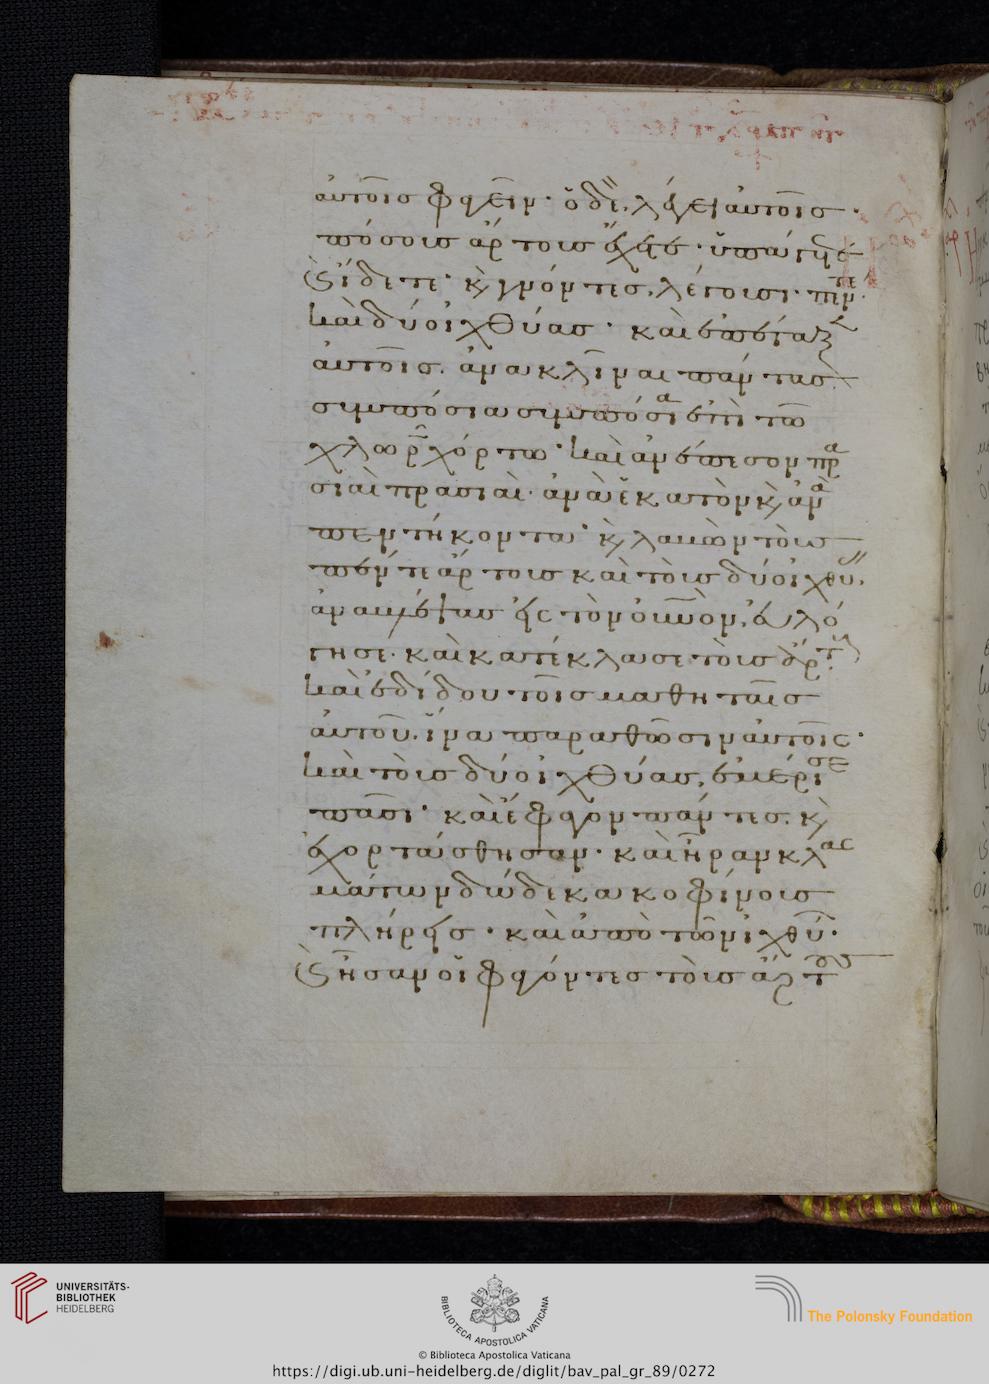 αὐτοῖς φαγεῖν· ὁ δὲ λέγει αὐτοῖς·
πόσους ἄρτους ἔχετε· ὑπάγετε
καὶ ἴδετε· καὶ γνόντες, λέγουσι· πέντε
καὶ δύο ἰχθύας· καὶ ἐπέταξεν
αὐτοῖς ἀνακλῖναι πάντας
συμπόσια συμπόσια ἐπὶ τῶ
χλωρῶ χόρτω· καὶ ἀνέπεσον πρα
σιαὶ πρασιαὶ· ἀνὰ ἑκατὸν καὶ ἀνὰ
πεντήκοντα· καὶ λαβὼν τοὺς
πέντε ἄρτους καὶ τοὺς δύο ἰχθύας,
ἀναβλέψας εἰς τὸν οὐνὸν, εὐλό
γησε· καὶ κατέκλασε τοὺς ἄρτους
καὶ ἐδίδου τοῖς μαθηταῖς
αὐτοῦ, ἵνα παραθῶσιν αὐτοῖς·
καὶ τοὺς δύο ἰχθύας, ἐμέρισε
πᾶσι· καὶ ἔφαγον πάντες, καὶ
ἐχορτάσθησαν· καὶ ἦραν κλας
μάτων δώδεκα κοφίνους
πλήρεις· καὶ ἀπὸ τῶν ἰχθύων·
καὶ ἦσαν οἱ φαγόντες τοὺς ἄρτους
UNIVERSITÄTS-
BIBLIOTHEK
HEIDELBERG
BIBLIOTECA APOSTOLICA VATICANA
The Polonsky Foundation
© Biblioteca Apostolica Vaticana
https://digi.ub.uni-heidelberg.de/diglit/bav_pal_gr_89/0272